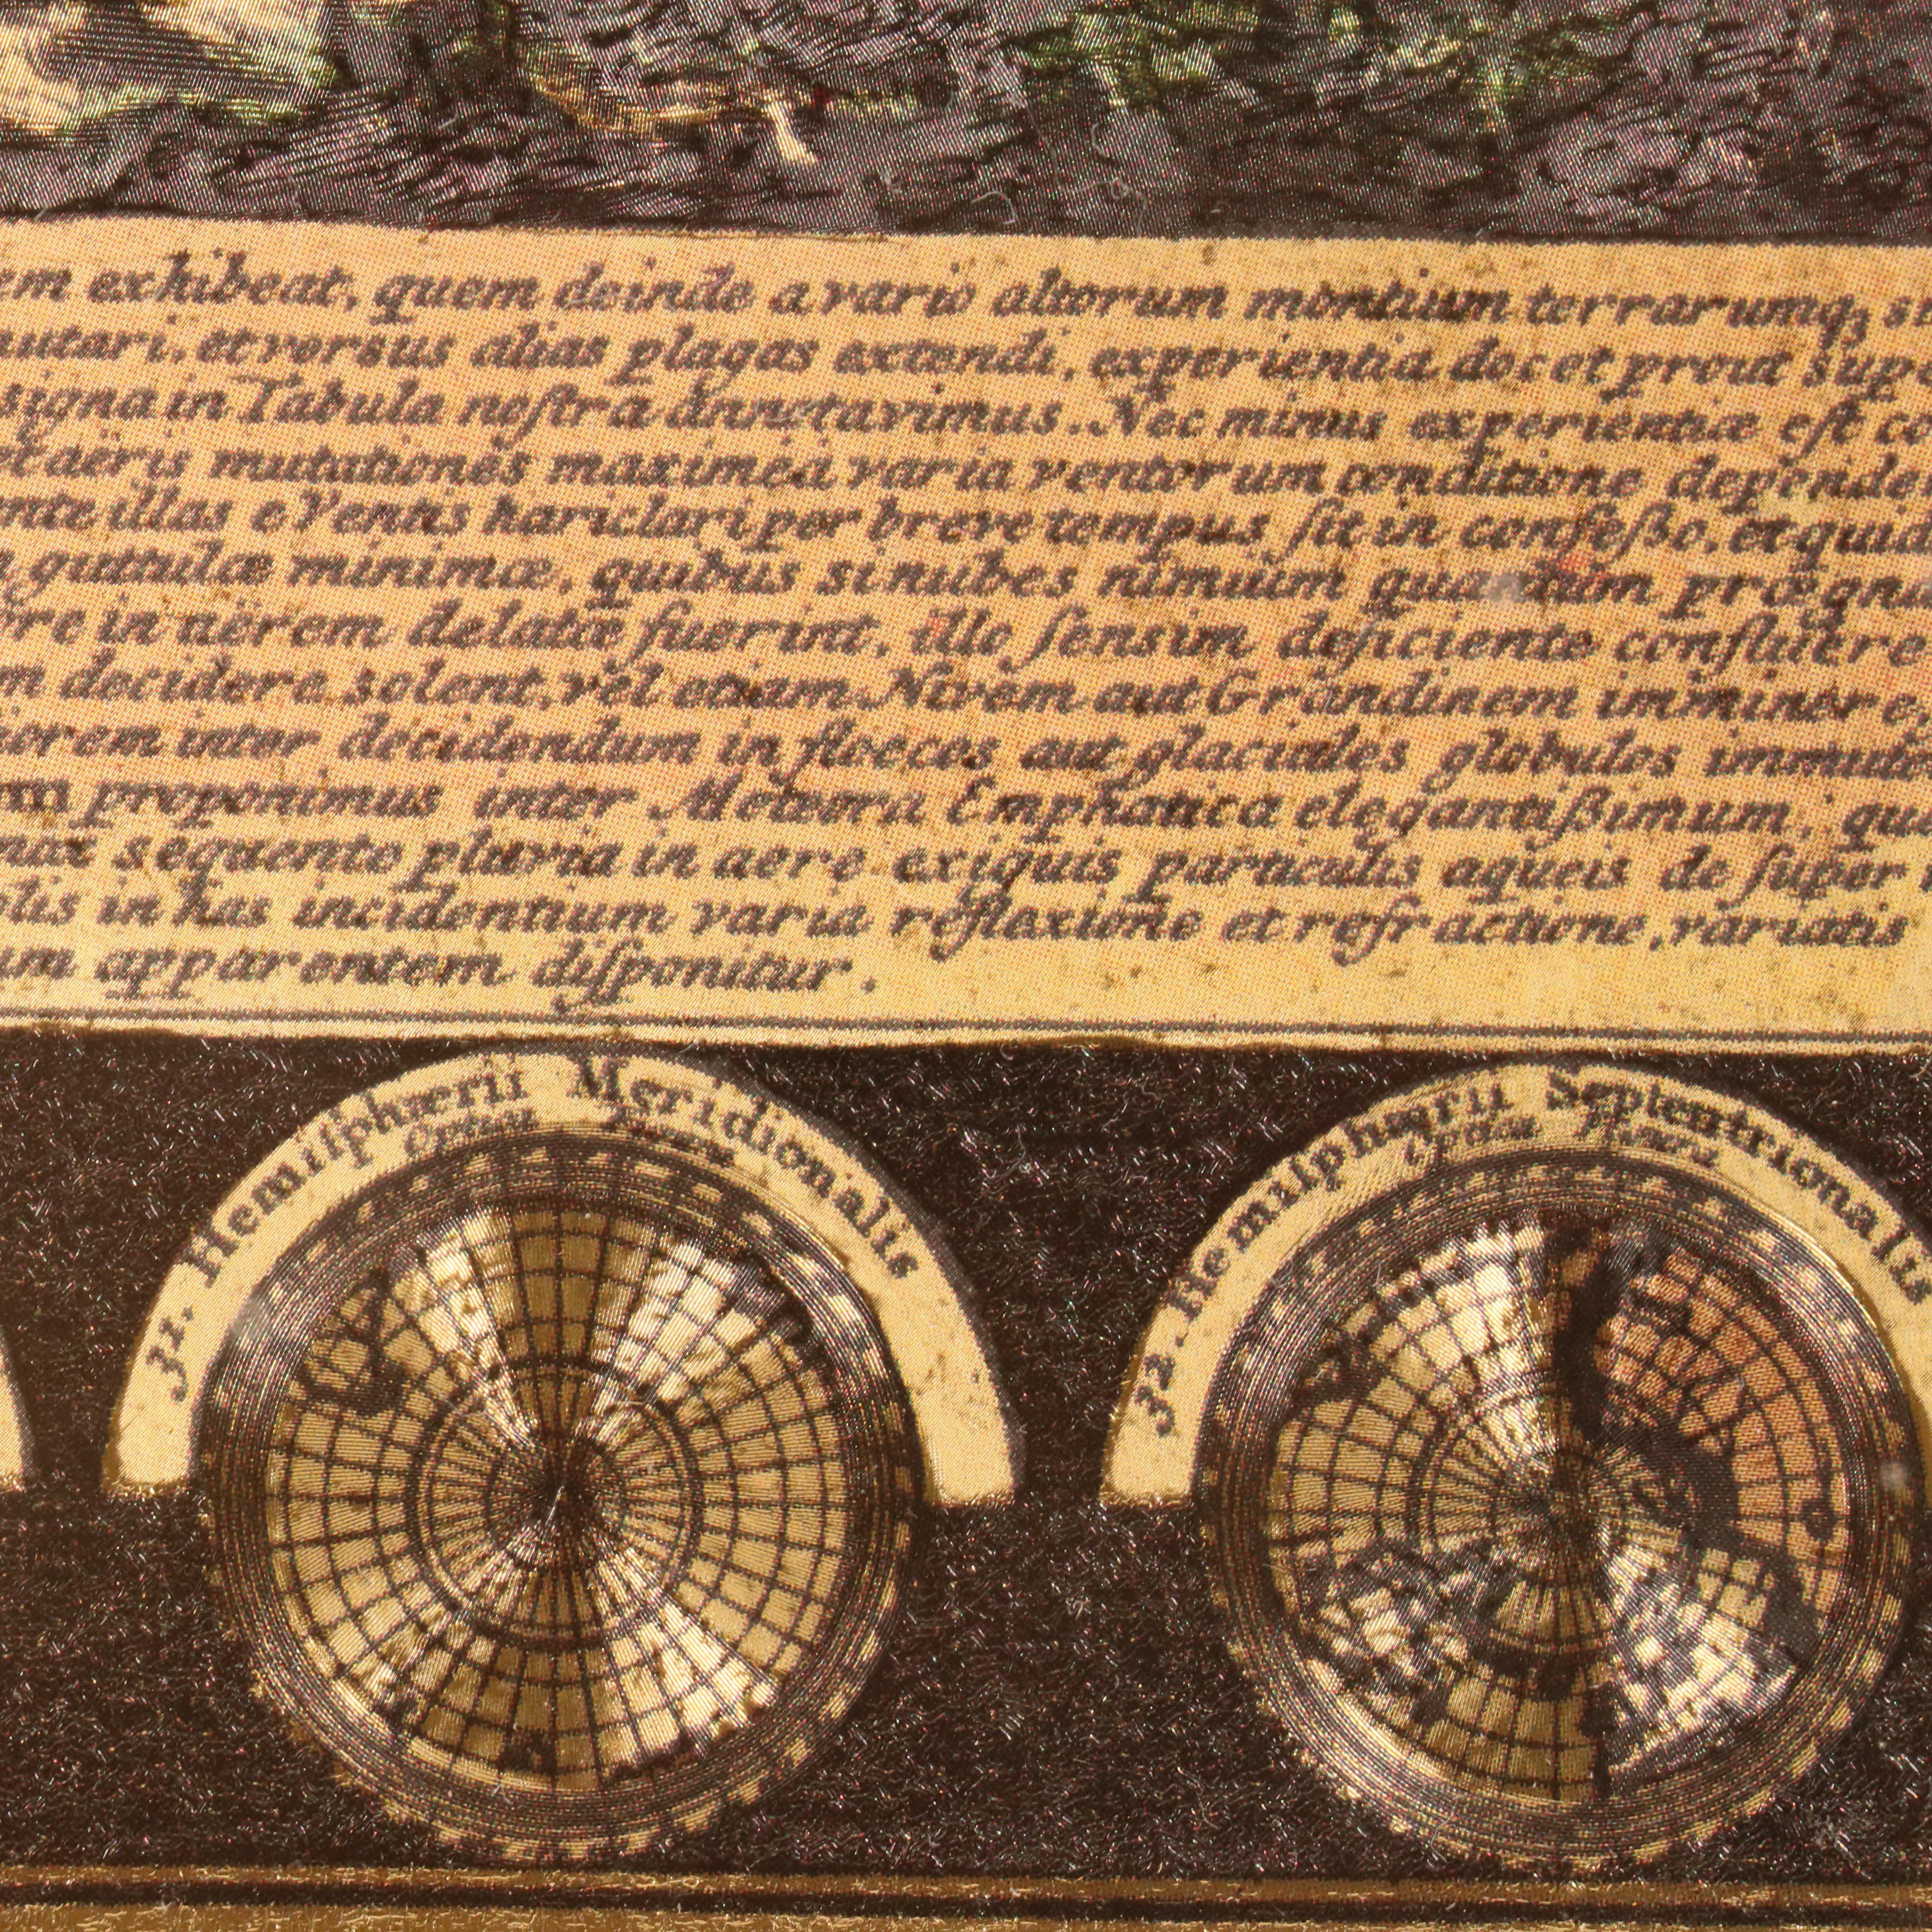 em exhibeat, quem deinde a vario altorum montium terrarumq; si
utari, et versus alias plagas extendi, experientia docet prout sup
signa in Tabula noſtra annotavimus. Nec minus experientiæ eſt co
aëris mutationes maxime à varia ventorum conditione depende
nte illas e Ventis hariolari per breve tempus ſit in confeßo, et quid
guttulæ minimæ, quibus si nubes nimium quandum prægna
re in aërem delatæ fuerint, illo ſensim deficiente confluere
m decidere solent, vel etiam Nivem aut Grandinem imminere,
orem inter decidendum in floccos aut glaciales globulos immuta
m proponimus inter Meteora Emphatica elegantißimum, qu
sequente pluvia in aere exiguis particulis aqueis de ſuper
olis in has incidentium varia reflexione et refractione, variatis
m apparentem diſponitur.
31. Hemiſphærii Meridionalis
32. Hemiſphærii Septentrionalis